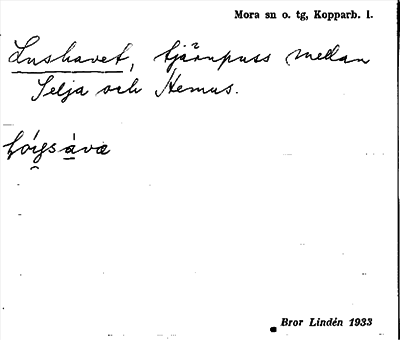 Mora sn o. tg, Kopparb. l.
Lushavet, tjärnpuss mellan
Selja och Hemus.
Bror Lindén 1933